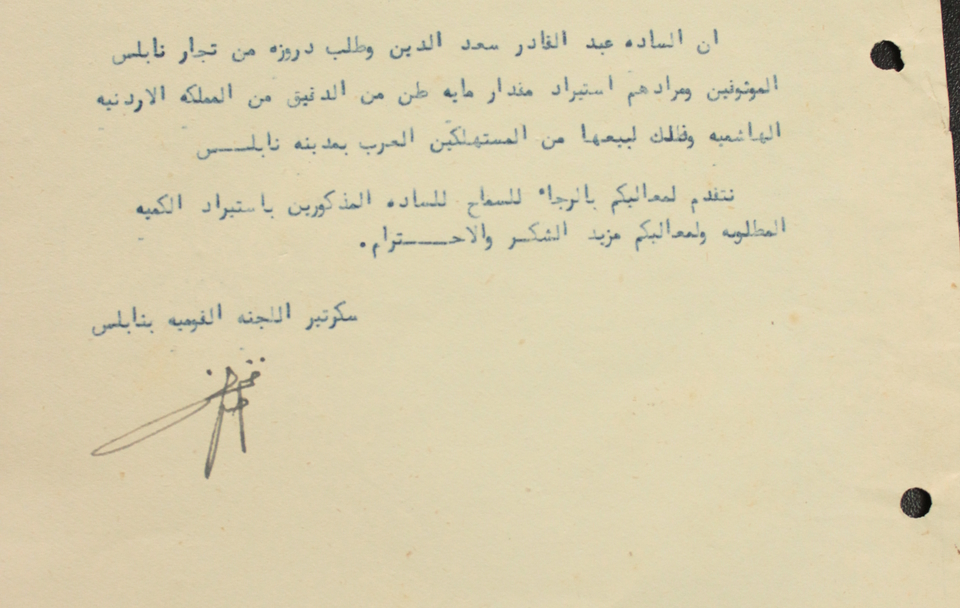 ان الساده عبد القادر سعد الدين وطلب دروزه من تجار نابلس
الموثوقين ومرادهم استيراد مقدار مايه طن من الدقيق من المملكه الاردنيه
الهاشميه وذلك لبيعها من المستهلكين العرب بمدينه نابلـــس
نتقدم لمعاليكم بالرجاء للسماح للساده المذكورين باستيراد الكميه
المطلوبه ولمعاليكم مزيد الشكـر والاحــــترام.
سكرتير اللجنه القوميه بنابلس